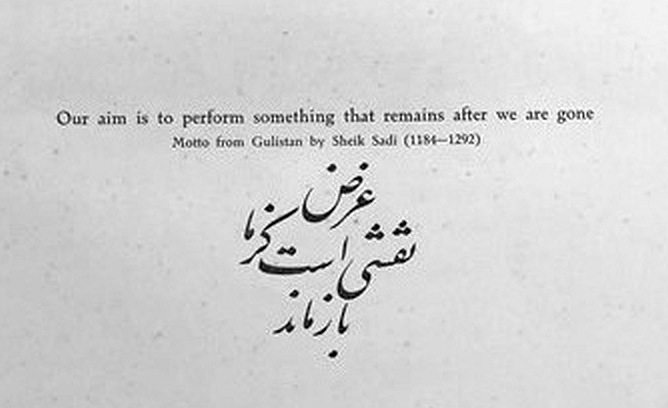 Our aim is to perform something that remains after we are gone
Motto from Gulistan by Sheik Sadi (1184—1292)
غرض
نقشی است کز ما
باز ماند